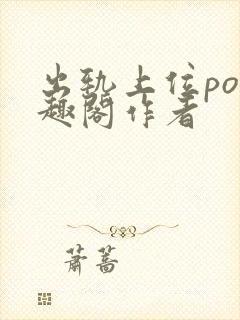 出轨上位po
趣阁作者
萧蒿